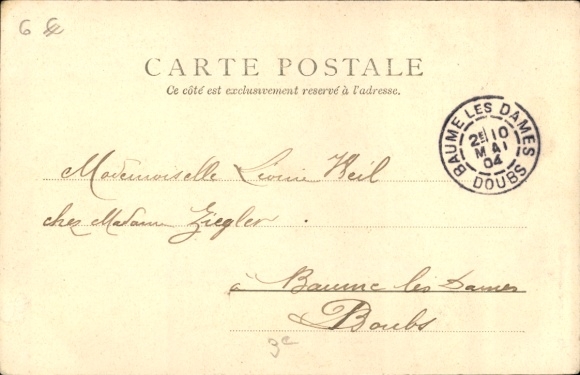 6
CARTE POSTALE
Ce côté est exclusivement reservé à l'adresse.
BAUME LES DAMES
2E 10
MAI
04
DOUBS
Mademoiselle Léonie Weil
chez Madame Ziegler.
à Baume les Dames
Doubs
3e